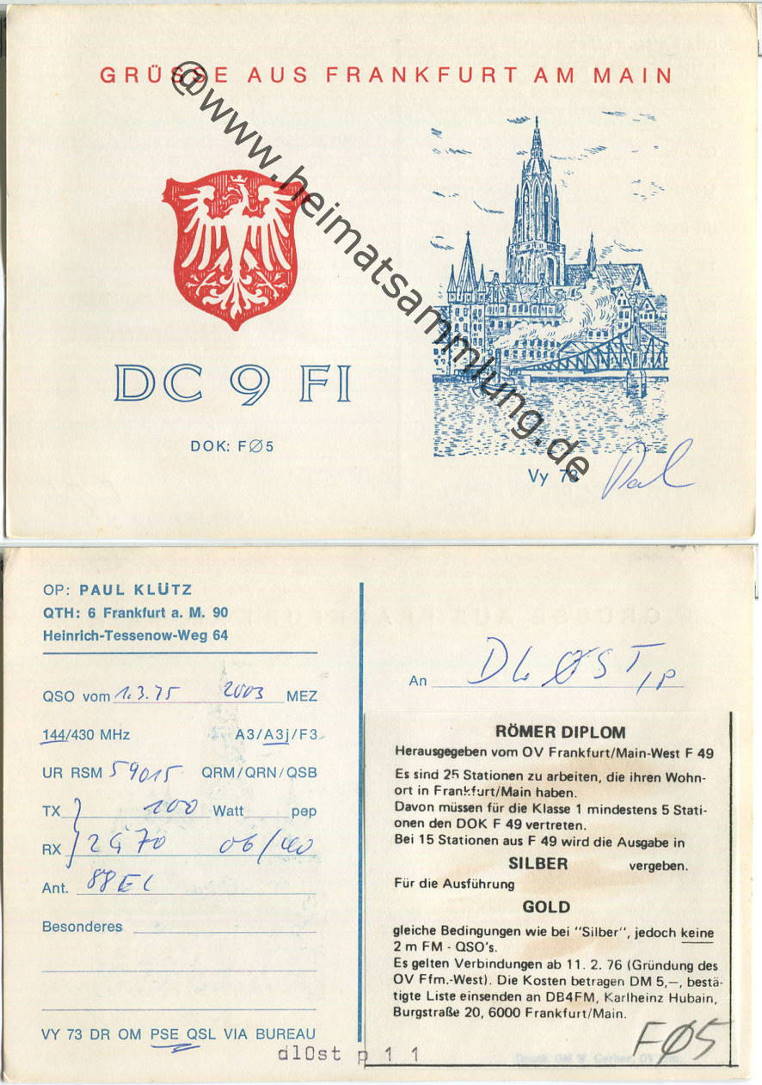 GRÜSSE AUS FRANKFURT AM MAIN
@www.heimatsammlung.de
DC 9 FI
DOK: FØ5
Vy 73 Paul
OP: PAUL KLÜTZ
QTH: 6 Frankfurt a. M. 90
Heinrich-Tessenow-Weg 64
QSO vom 1.3.75 2003 MEZ
144/430 MHz A3/A3j/F3
UR RSM 59015 QRM/QRN/QSB
TX 100 Watt pep
RX 2G70 06/40
Ant. 88El
Besonderes
VY 73 DR OM PSE QSL VIA BUREAU
An DLØST/p
RÖMER DIPLOM
Herausgegeben vom OV Frankfurt/Main-West F 49
Es sind 25 Stationen zu arbeiten, die ihren Wohn-
ort in Frankfurt/Main haben.
Davon müssen für die Klasse 1 mindestens 5 Stati-
onen den DOK F 49 vertreten.
Bei 15 Stationen aus F 49 wird die Ausgabe in
SILBER vergeben.
Für die Ausführung
GOLD
gleiche Bedingungen wie bei "Silber", jedoch keine
2 m FM - QSO's.
Es gelten Verbindungen ab 11. 2. 76 (Gründung des
OV Ffm.-West). Die Kosten betragen DM 5,–, bestä-
tigte Liste einsenden an DB4FM, Karlheinz Hubain,
Burgstraße 20, 6000 Frankfurt/Main.
FØ5
dl0st p 1 1